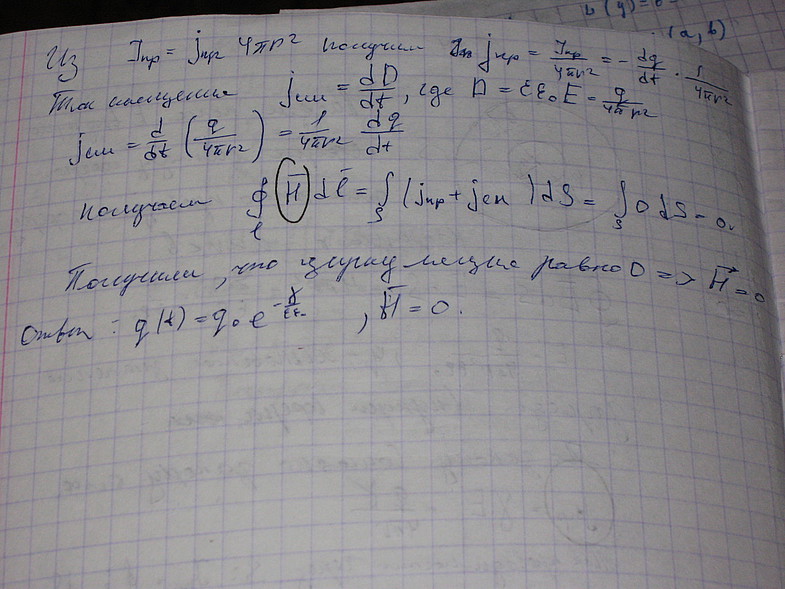 b(y)=0
(a, b)
Из Iпр = jпр 4πr² получим jпр = Iпр/4πr² = - dq/dt · 1/4πr²
Ток смещения jсм = dD/dt, где D = εε₀E = q/4πr²
jсм = d/dt (q/4πr²) = 1/4πr² dq/dt
получаем ∮ₗ H̅ dl̅ = ∫ₛ (jпр + jсм) dS = ∫ₛ 0 dS = 0.
Получили, что циркуляция равно 0 => H⃗ = 0
Ответ: q(t) = q₀ e , H̅ = 0.